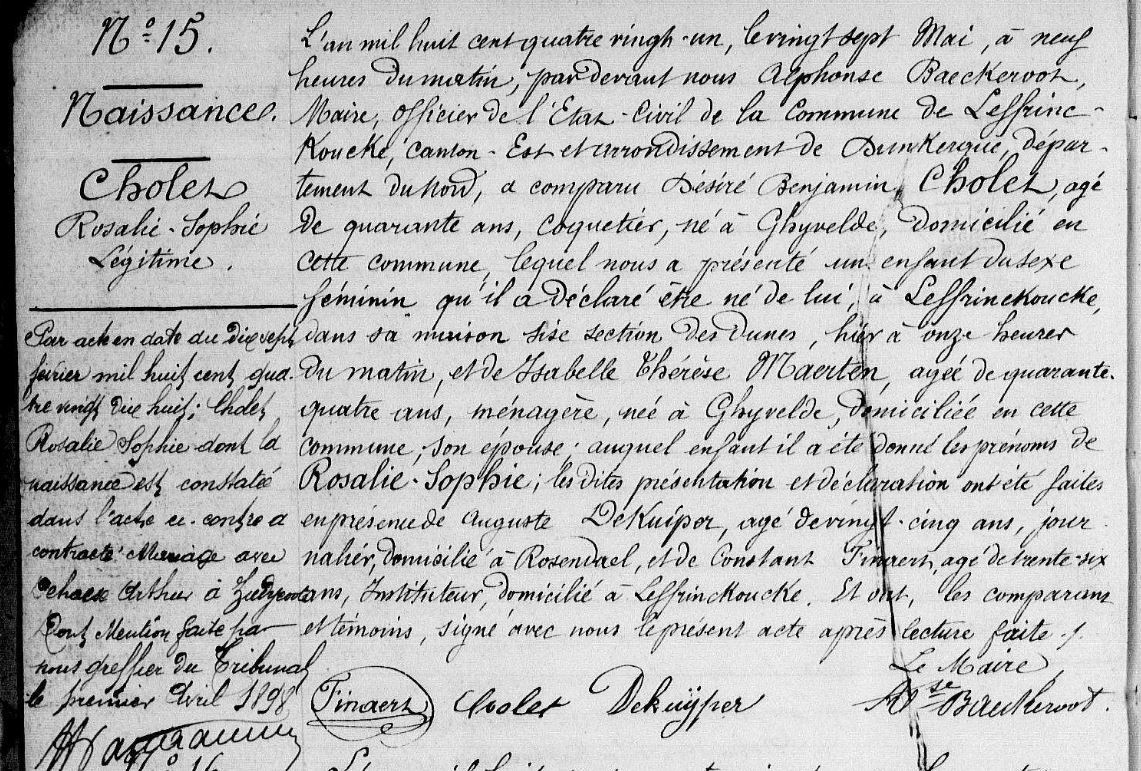 N.o 15.
Naissance.
Cholet
Rosalie-Sophie
Légitime.
L'an mil huit cent quatre vingt-un, le vingt sept Mai, à neuf
heures du matin, par devant nous Alphonse Baeckeroot,
Maire, Officier de l'Etat-Civil de la Commune de Leffrinc-
Koucke, canton-Est et arrondissement de Dunkerque, dépar-
tement du Nord, a comparu Désiré Benjamin Cholet, agé
de quarante ans, Coquetier, né à Ghyvelde, domicilié en
cette commune, lequel nous a présenté un enfant du sexe
féminin qu'il a déclaré être né de lui, à Leffrinckoucke,
dans sa maison sise section des Dunes, hier à onze heures
du matin, et de Isabelle Thérèse Maerten, agée de quarante-
quatre ans, ménagère, née à Ghyvelde, domiciliée en cette
commune, son épouse; auquel enfant il a été donné les prénoms de
Rosalie-Sophie; les dites présentation et déclaration ont été faites
en présence de Auguste DeKuiper, agé de vingt-cinq ans, jour-
nalier, domicilié à Rosendael, et de Constant Finaert, agé de trente-six
ans, Instituteur, domicilié à Leffrinckoucke. Et ont, les comparant
et témoins, signé avec nous le présent acte après lecture faite./.
Le Maire
Finaert Cholet DeKuÿper Ase Baeckeroot.
Par acte en date du dix sept
février mil huit cent qua-
tre vingt dix huit; Cholet
Rosalie Sophie dont la
naissance est constatée
dans l'acte ci-contre a
contracté Mariage avec
Arthur à Zuydcoote
Dont Mention faite par
nous greffier du Tribunal
le premier Avril 1898